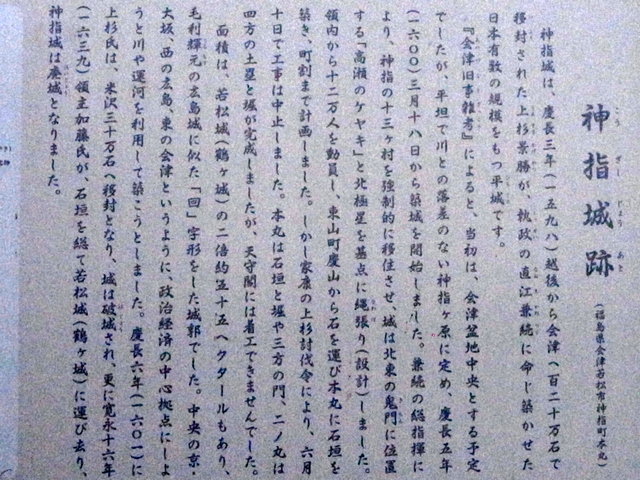 こうざしじょうあと
神指城跡
(福島県会津若松市神指町本丸)
神指城は、慶長三年(一五九八)越後から会津(百二十万石で
移封された上杉景勝が、執政の直江兼続に命じ築かせた
日本有数の規模をもつ平城です。
『会津旧事雑考』によると、当初は、会津盆地中央とする予定
でしたが、平坦で川との落差のない神指ヶ原に定め、慶長五年
(一六〇〇)三月十八日から築城を開始しました。兼続の総指揮に
より、神指の十三ヶ村を強制的に移住させ、城は北東の鬼門に位置
する「高瀬のケヤキ」と北極星を基点に縄張り(設計)しました。
領内から十二万人を動員し、東山町慶山から石を運び本丸に石垣を
築き、町割まで計画しました。しかし家康の上杉討伐令により、六月
十日で工事は中止しました。本丸は石垣と堀や三方の門、二ノ丸は
四方の土塁と堀が完成しましたが、天守閣には着工できませんでした。
面積は、若松城(鶴ヶ城)の二倍約五十五ヘクタールもあり、
毛利輝元の広島城に似た「回」字形をした城郭でした。中央の京・
大坂、西の広島、東の会津というように、政治経済の中心拠点にしよ
うと川や運河を利用して築こうとしました。慶長六年(一六〇一)に
上杉氏は、米沢三十万石へ移封となり、城は破城され、更に寛永十六年
(一六三九)領主加藤氏が、石垣を総て若松城(鶴ヶ城)に運び去り、
神指城は廃城となりました。